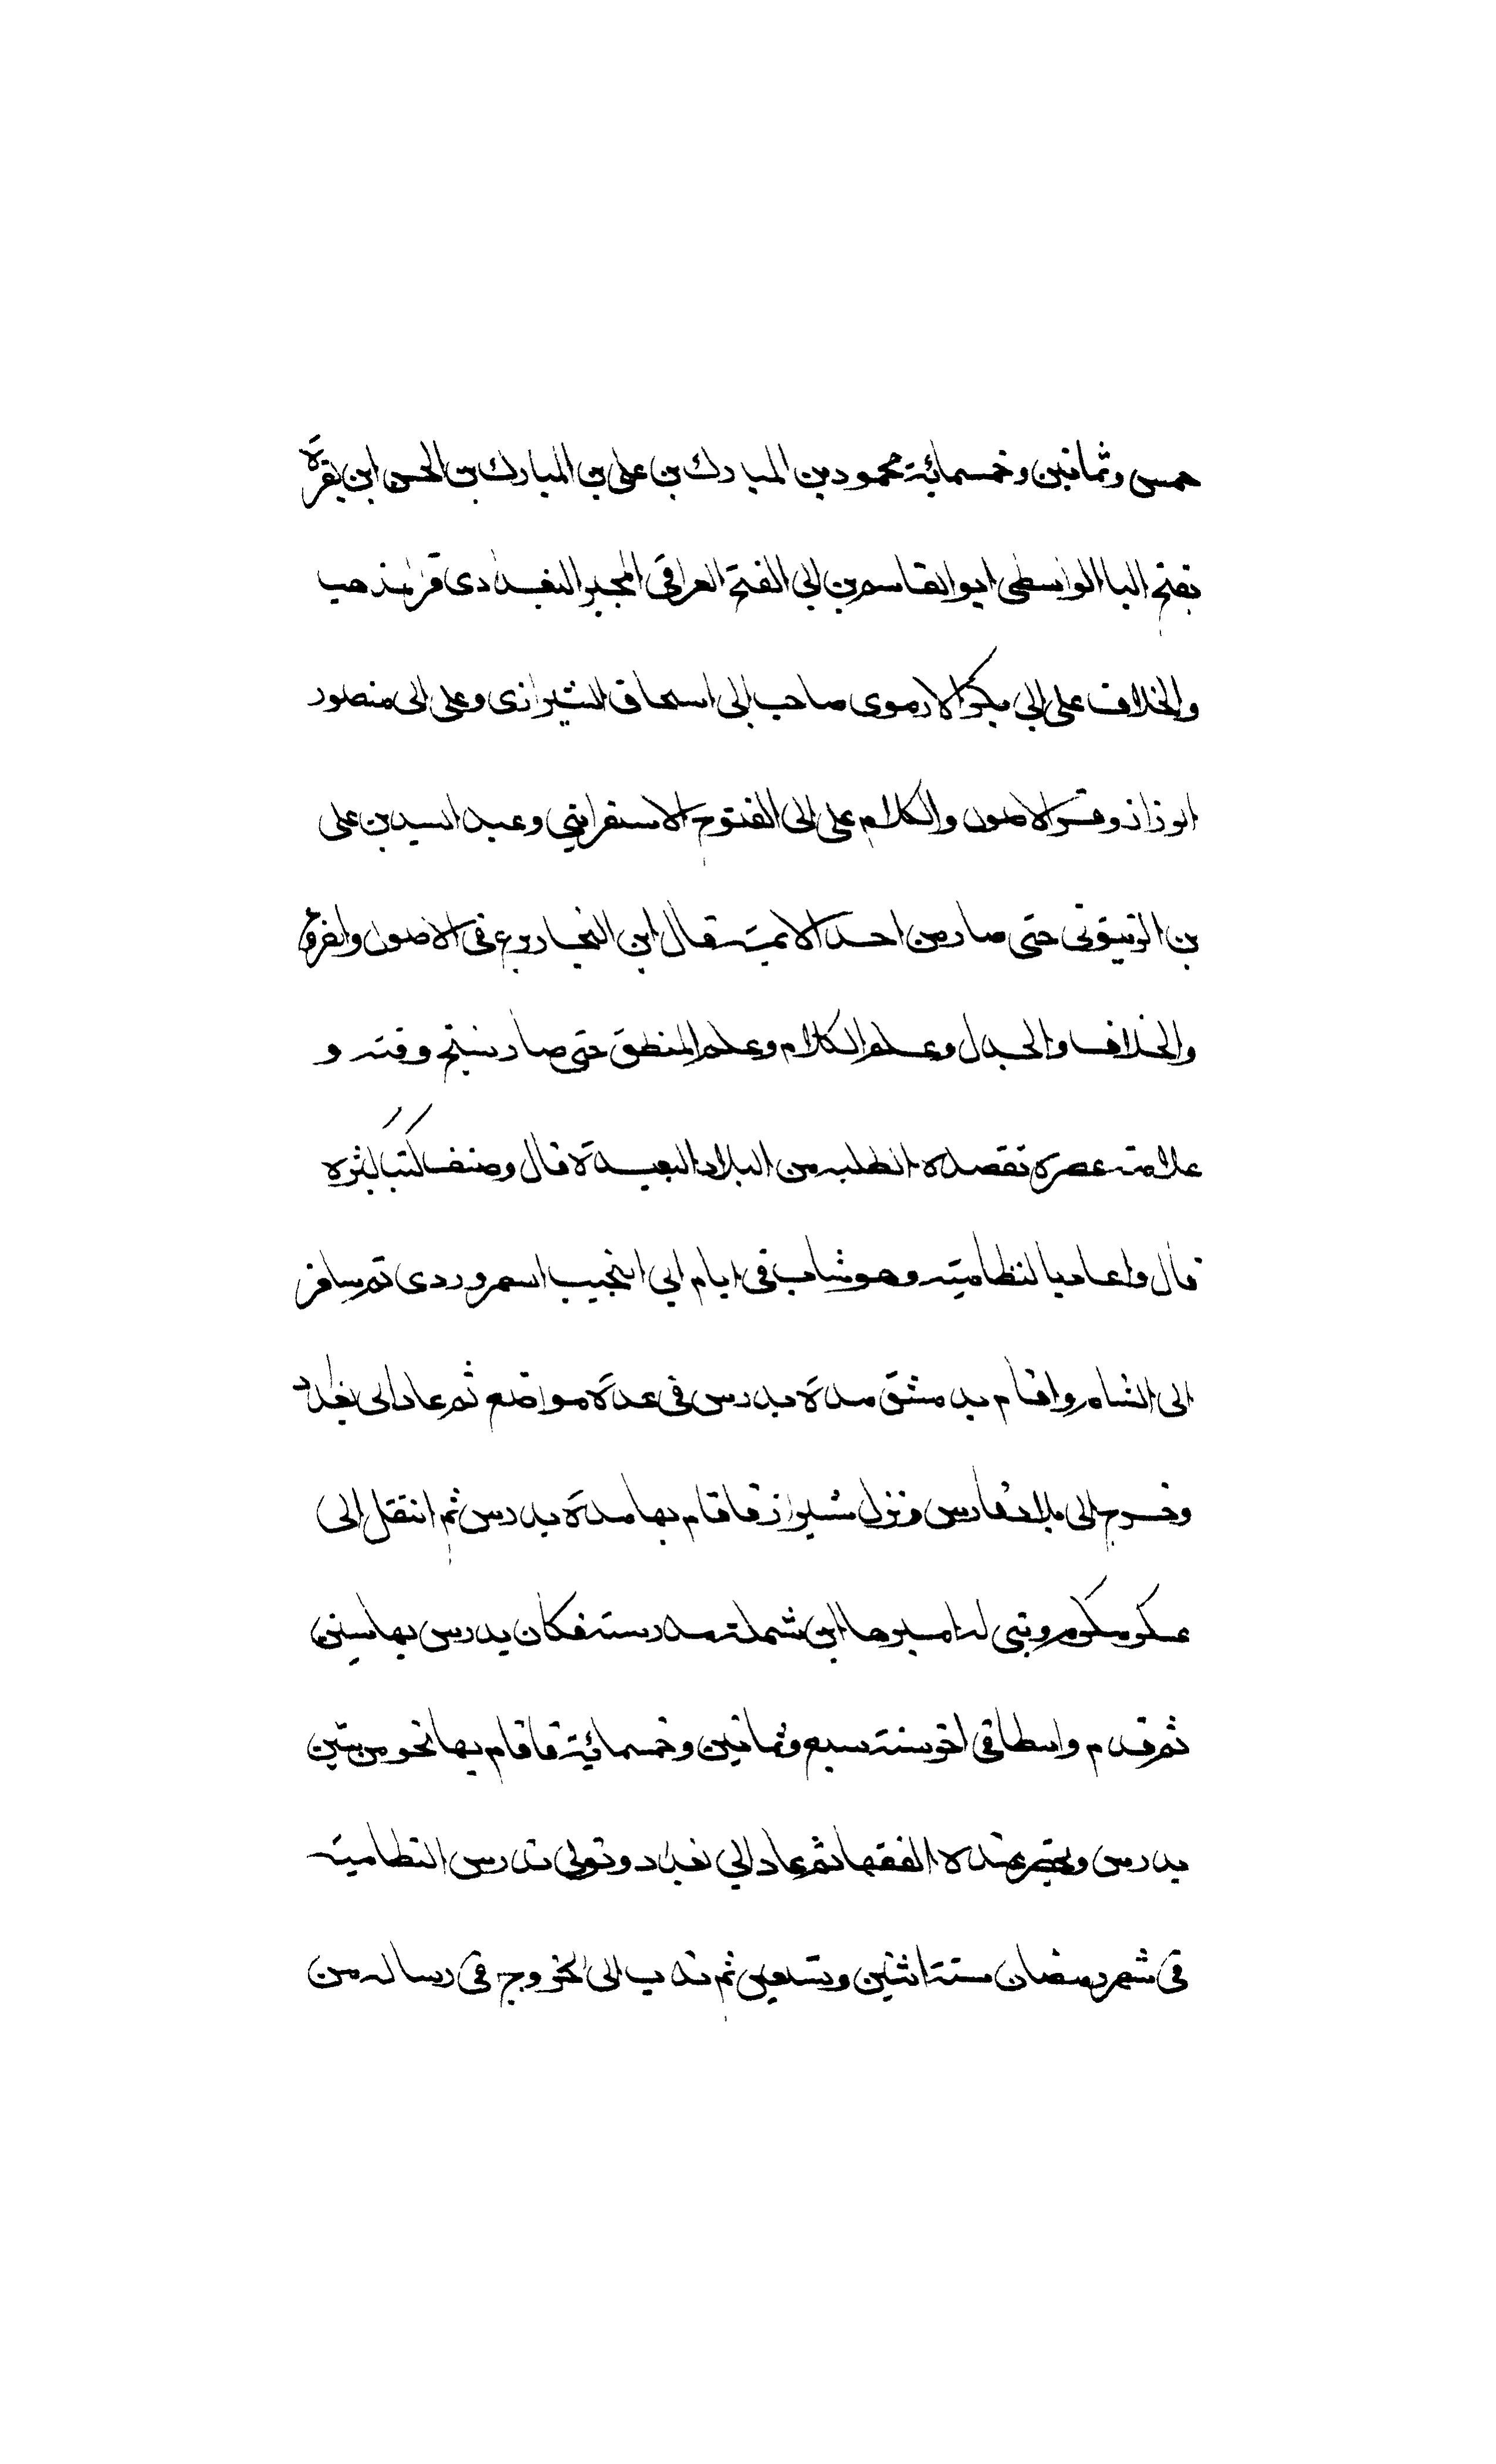 خمس وثمانين وخمسمائة محمود بن المبارك بن على بن المبارك بن الحسن ابن بقرة
بفتح البا الواسطى ابو القاسم بن ابي الفتح العراقى المجير البغدادى قرا مذهب
والخلاف على ابي بكر الارموى صاحب ابى اسحاق الشيرازى وعلى ابى منصور
الرزاز وقرا الاصول والكلام على ابى الفتوح الاسفراينى وعبد السيد بن على
بن الزيتونى حتى صار من احد الايمة قال ابن النجار برع فى الاصول والفروع
والخلاف والجدل وعلم الكلام وعلم المنطق حتى صار شيخ وقته و
علامة عصره تقصده الطلبه من البلاد البعيدة قال وصنف كتبا كثيره
قال واعاد بالنظامية وهو شاب فى ايام ابي النجيب السهروردى ثم سافر
الى الشام واقام بدمشق مدة يدرس فى عدة مواضع ثم عاد الى بغداد
وخرج الى بلاد فارس ونزل شيراز فاقام بها مدة يدرس ثم انتقل الى
عسكر مكرم وبنى له اميرها ابن شملة مدرسة فكان يدرس بها سنين
ثم قدم واسطا فى اخر سنة سبع وثمانين وخمسمائة فاقام بها نحو من سنتين
يدرس ويحضر عنده الفقها ثم عاد الي بغداد وتولى تدرس النظامية
فى شهر رمضان سنة اثنين وتسعين ثم ندب الى الخروج فى رساله من